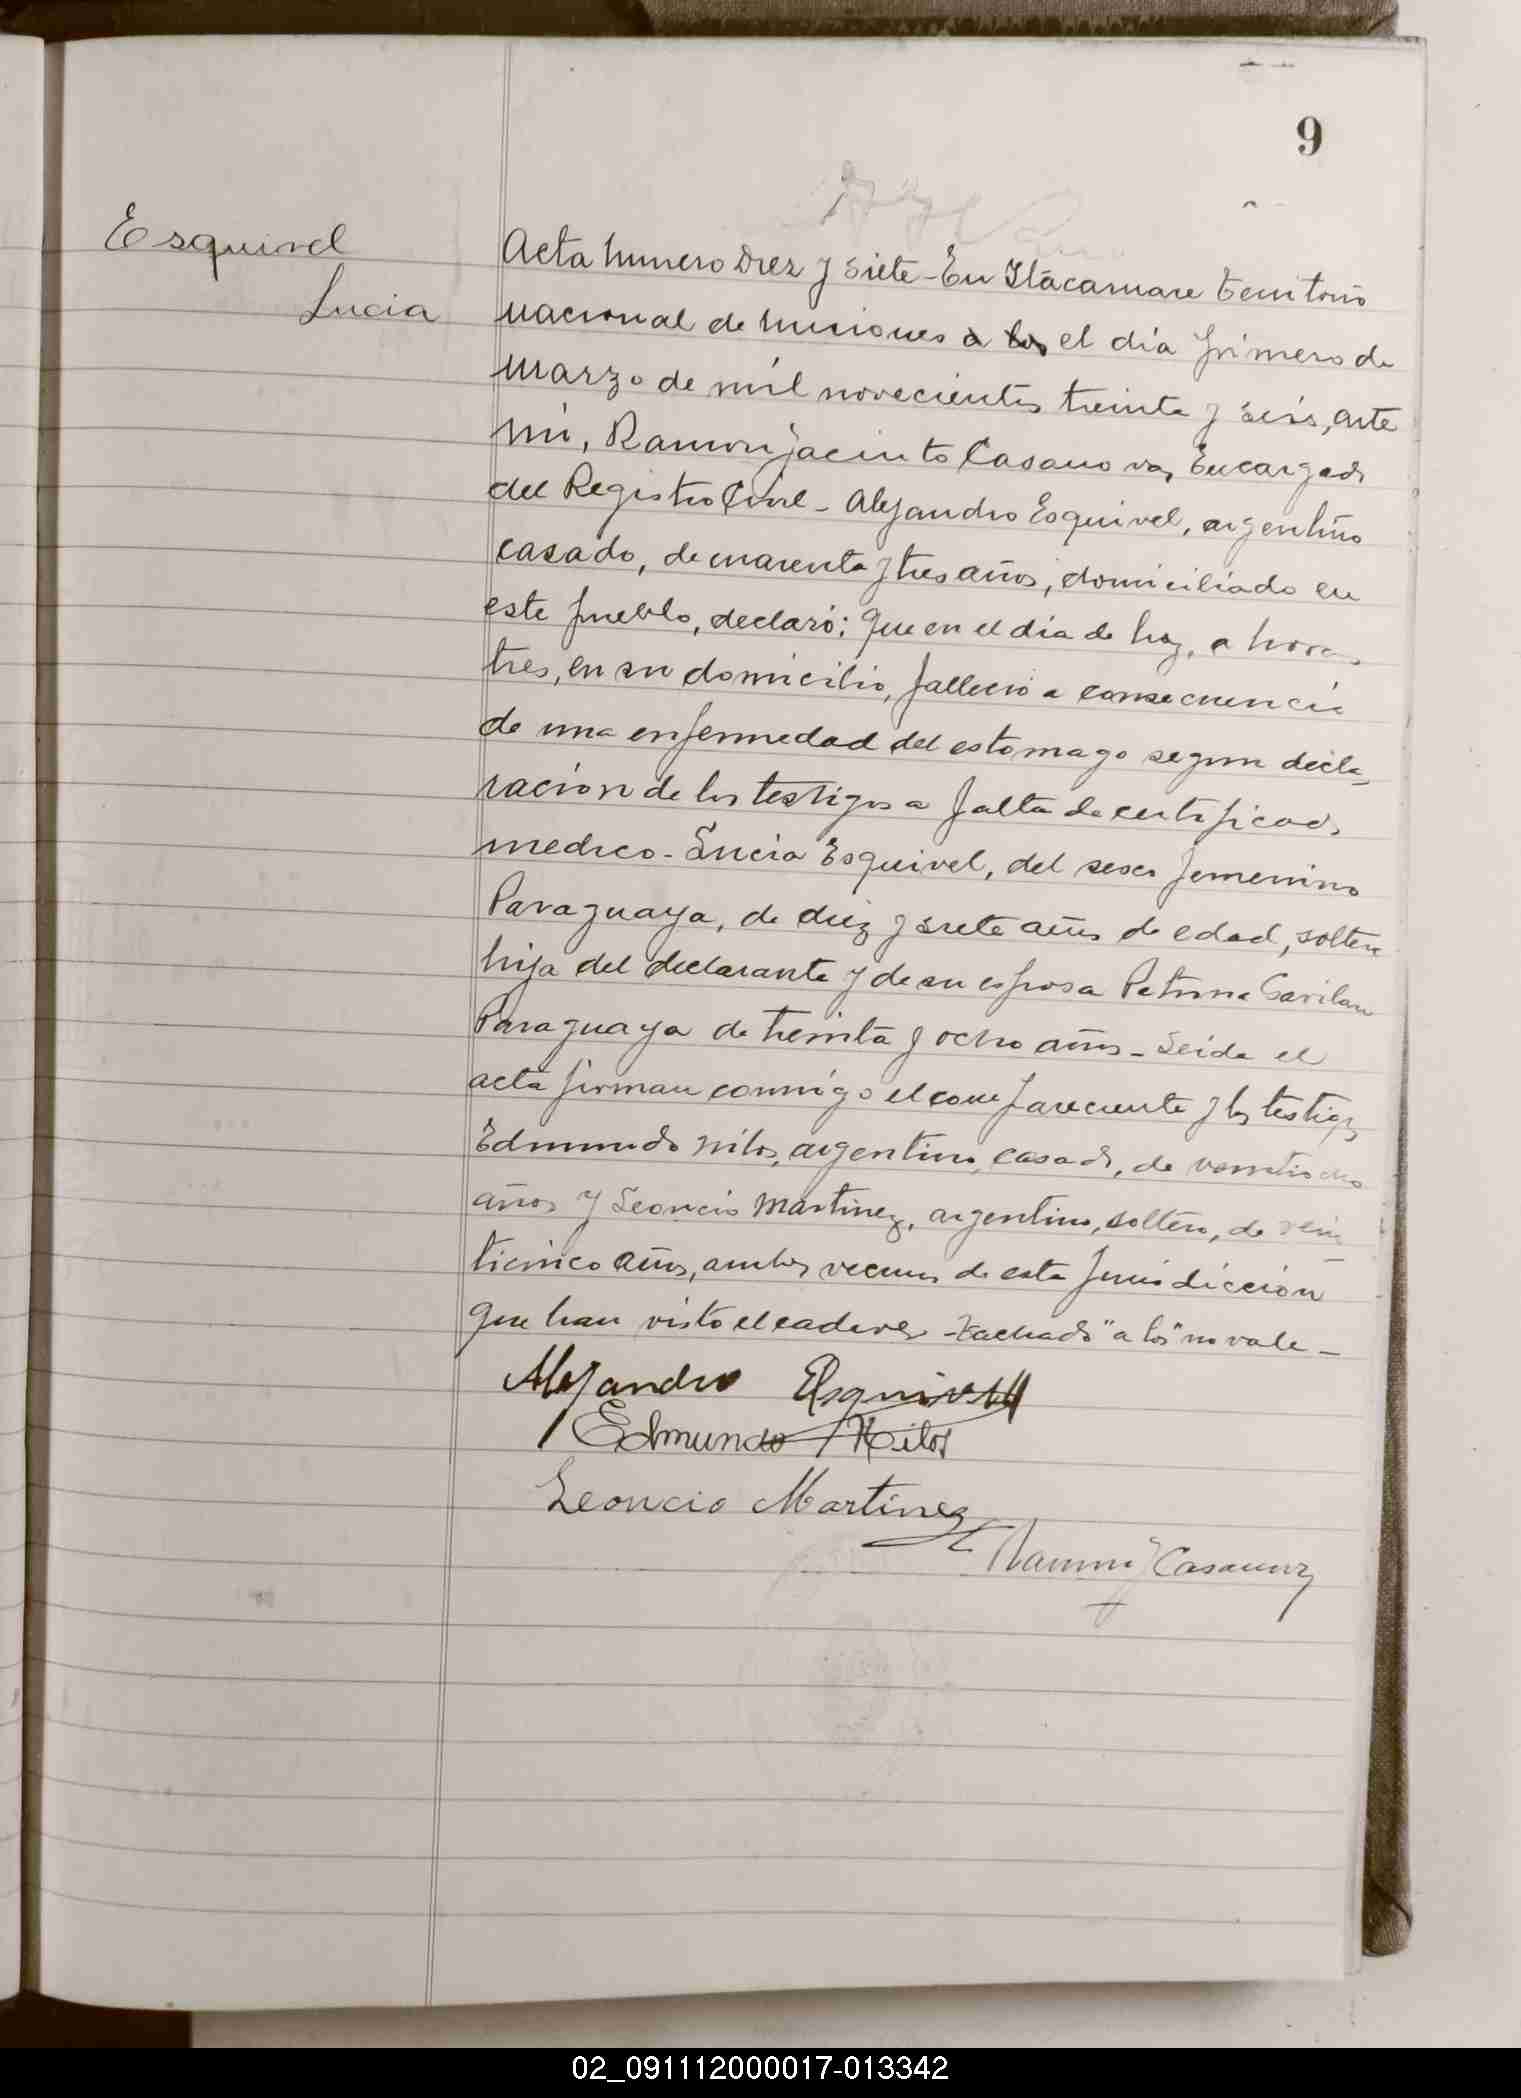 9
Esquivel
Lucia
Acta numero Diez y siete - En Itacaruare territorio
nacional de misiones a los el día primero de
Marzo de mil novecientos treinta y seis, ante
mi, Ramon Jacinto Casanova, Encargado
del Registro Civil - Alejandro Esquivel, argentino
casado, de cuarenta y tres años, domiciliado en
este pueblo, declaró: Que en el día de hoy, a horas
tres, en su domicilio, fallecio a consecuencia
de una enfermedad del estomago segun decla-
racion de los testigos a falta de certificado
medico - Lucia Esquivel, del sexo femenino
Paraguaya, de diez y siete años de edad, soltera
hija del declarante y de su esposa Petrona Gavilan
Paraguaya de treinta y ocho años - Leida el
acta firman conmigo el compareciente y los testigos
Edmundo Nilos, argentino, casado, de veintiocho
años y Leoncio Martinez, argentino, soltero, de vein
ticinco años, ambos vecinos de esta Jurisdicción
que han visto el cadaver - Tachado "a los" no vale -
Alejandro Esquivel
Edmundo Nilos
Leoncio Martinez
Ramon J Casanova
02_091112000017-013342